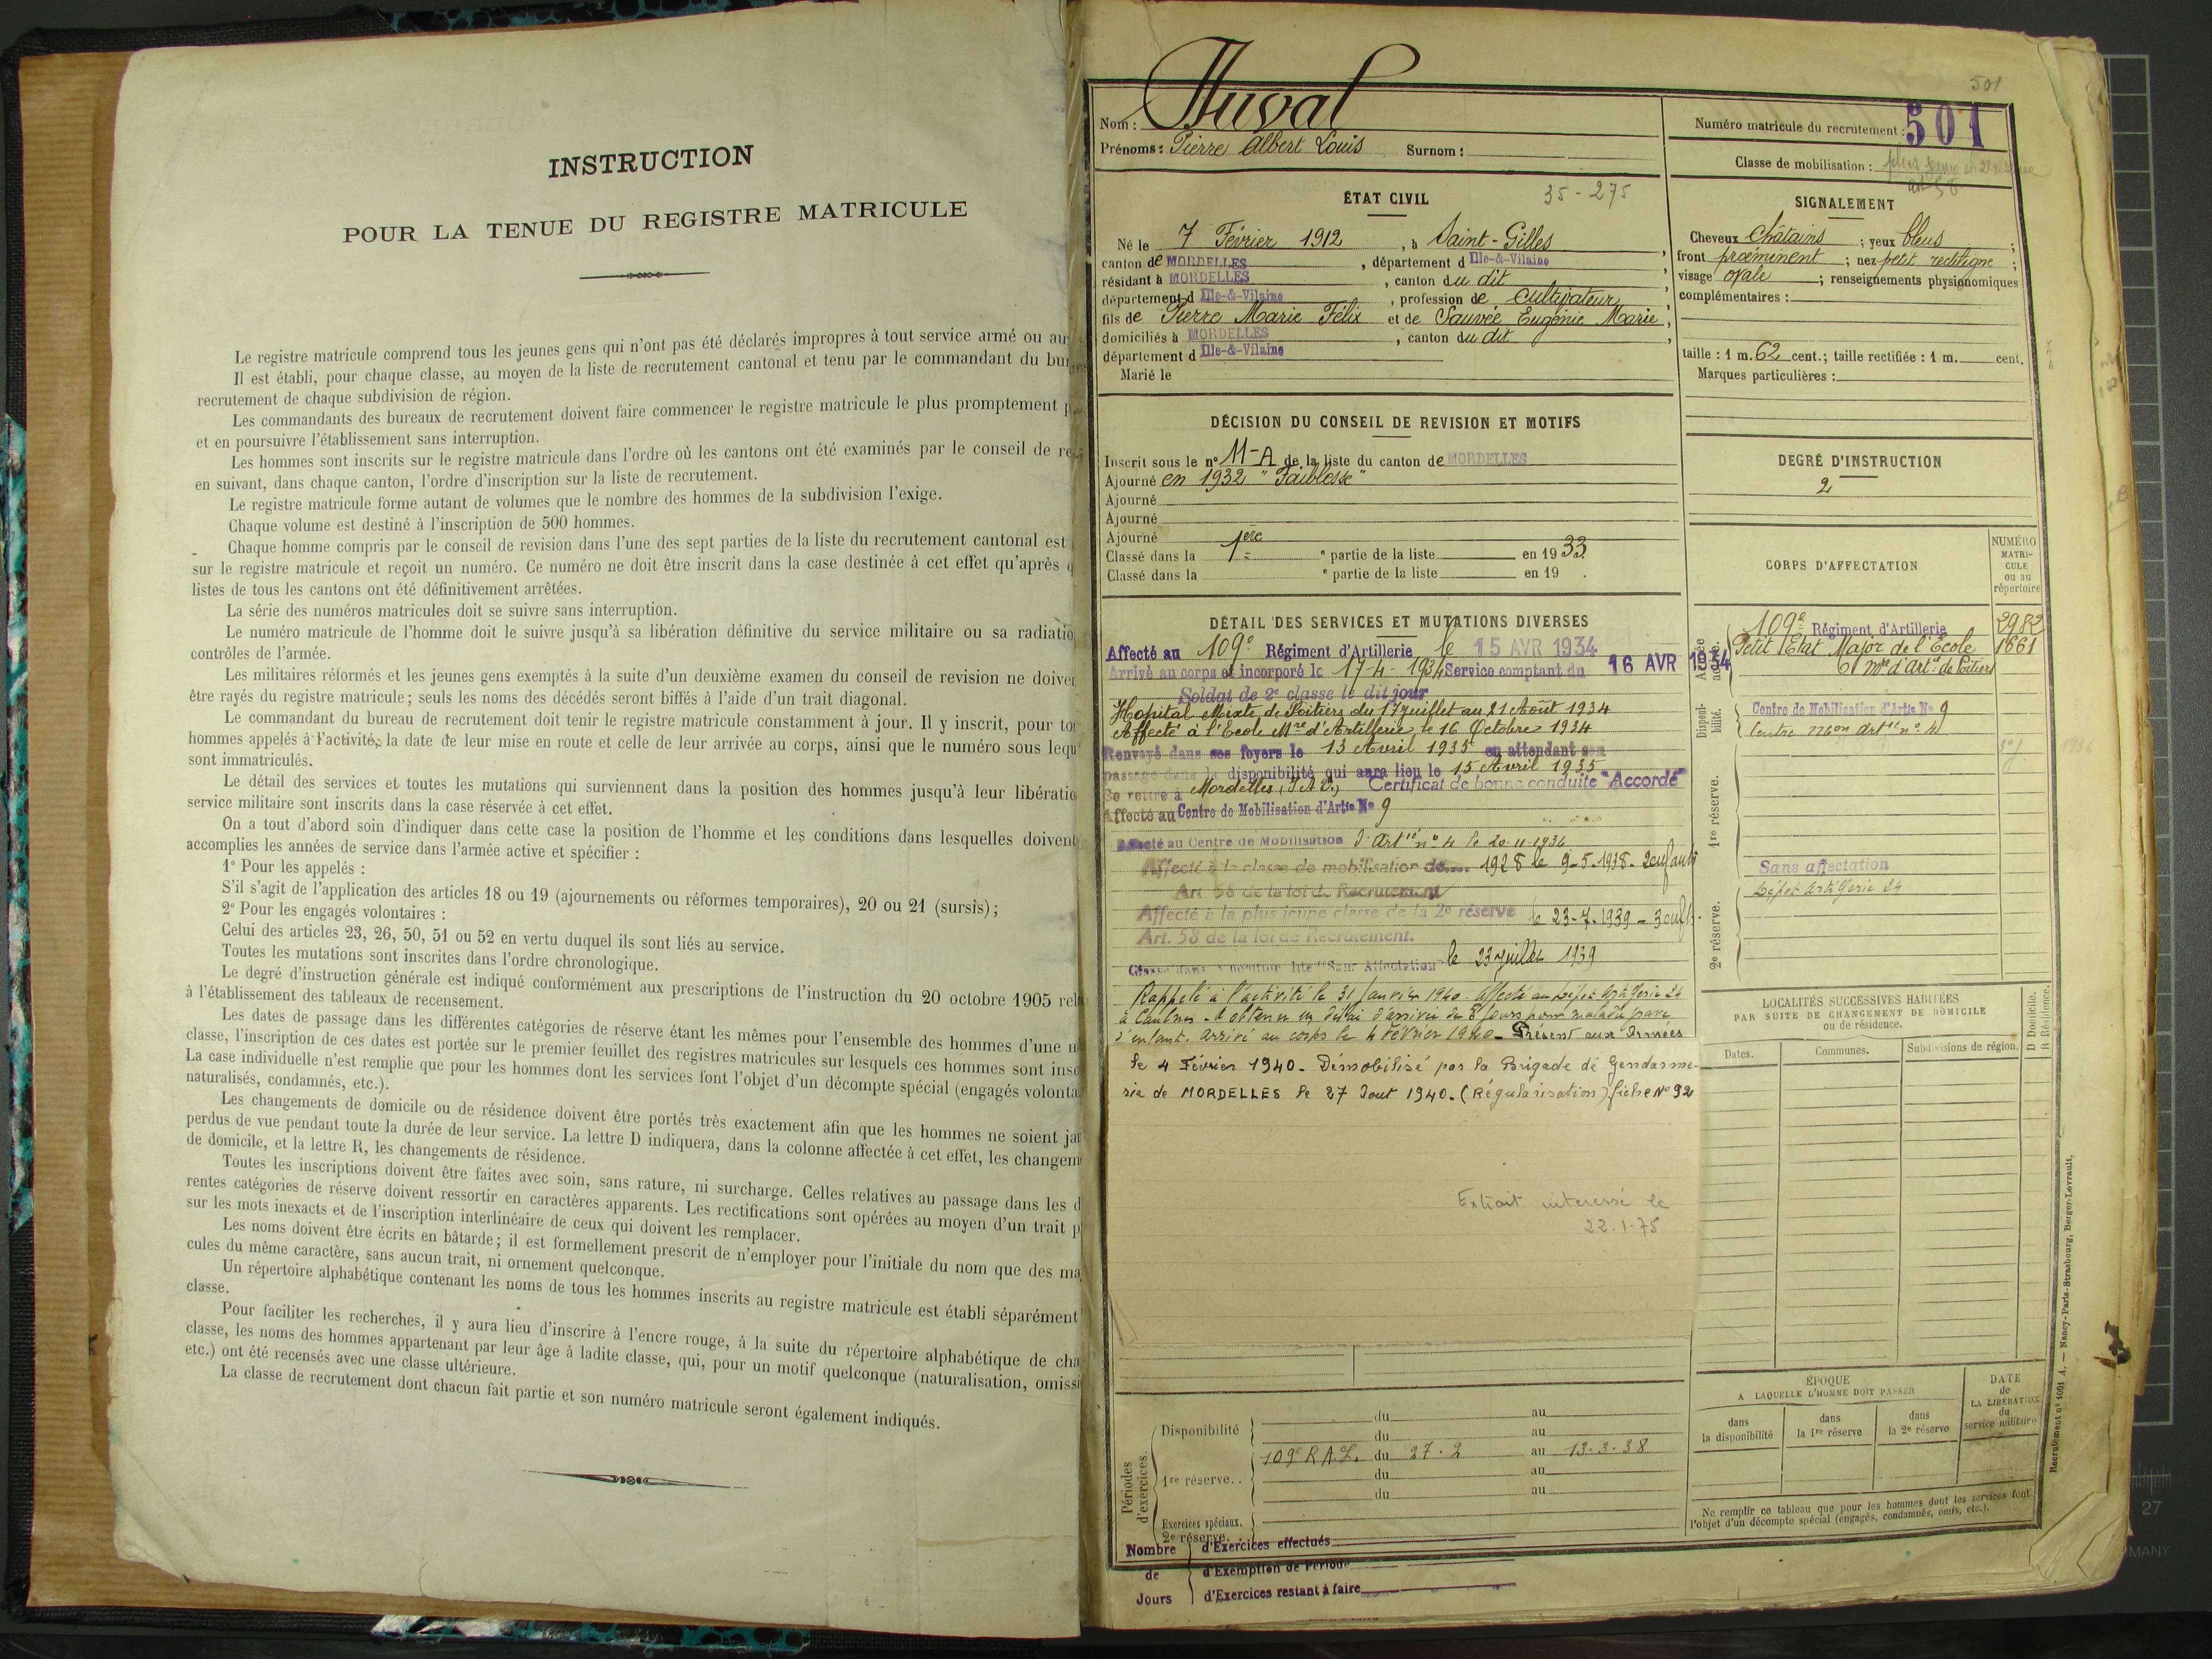 INSTRUCTION
POUR LA TENUE DU REGISTRE MATRICULE
Le registre matricule comprend tous les jeunes gens qui n'ont pas été déclarés impropres à tout service armé ou au
Il est établi, pour chaque classe, au moyen de la liste de recrutement cantonal et tenu par le commandant du bu
recrutement de chaque subdivision de région.
Les commandants des bureaux de recrutement doivent faire commencer le registre matricule le plus promptement
et en poursuivre l'établissement sans interruption.
Les hommes sont inscrits sur le registre matricule dans l'ordre où les cantons ont été examinés par le conseil de re
en suivant, dans chaque canton, l'ordre d'inscription sur la liste de recrutement.
Le registre matricule forme autant de volumes que le nombre des hommes de la subdivision l'exige.
Chaque volume est destiné à l'inscription de 500 hommes.
Chaque homme compris par le conseil de revision dans l'une des sept parties de la liste du recrutement cantonal est
sur le registre matricule et reçoit un numéro. Ce numéro ne doit être inscrit dans la case destinée à cet effet qu'après
listes de tous les cantons ont été définitivement arrêtées.
La série des numéros matricules doit se suivre sans interruption.
Le numéro matricule de l'homme doit le suivre jusqu'à sa libération définitive du service militaire ou sa radiatio
contrôles de l'armée.
Les militaires réformés et les jeunes gens exemptés à la suite d'un deuxième examen du conseil de revision ne doive
être rayés du registre matricule; seuls les noms des décédés seront biffés à l'aide d'un trait diagonal.
Le commandant du bureau de recrutement doit tenir le registre matricule constamment à jour. Il y inscrit, pour to
hommes appelés à l'activité, la date de leur mise en route et celle de leur arrivée au corps, ainsi que le numéro sous lequ
sont immatriculés.
Le détail des services et toutes les mutations qui surviennent dans la position des hommes jusqu'à leur libératio
service militaire sont inscrits dans la case réservée à cet effet.
On a tout d'abord soin d'indiquer dans cette case la position de l'homme et les conditions dans lesquelles doivent
accomplies les années de service dans l'armée active et spécifier :
1° Pour les appelés :
S'il s'agit de l'application des articles 18 ou 19 (ajournements ou réformes temporaires), 20 ou 21 (sursis);
2° Pour les engagés volontaires :
Celui des articles 23, 26, 50, 51 ou 52 en vertu duquel ils sont liés au service.
Toutes les mutations sont inscrites dans l'ordre chronologique.
Le degré d'instruction générale est indiqué conformément aux prescriptions de l'instruction du 20 octobre 1905 rel
à l'établissement des tableaux de recensement.
Les dates de passage dans les différentes catégories de réserve étant les mêmes pour l'ensemble des hommes d'une
classe, l'inscription de ces dates est portée sur le premier feuillet des registres matricules sur lesquels ces hommes sont insc
La case individuelle n'est remplie que pour les hommes dont les services font l'objet d'un décompte spécial (engagés volonta
naturalisés, condamnés, etc.).
Les changements de domicile ou de résidence doivent être portés très exactement afin que les hommes ne soient ja
perdus de vue pendant toute la durée de leur service. La lettre D indiquera, dans la colonne affectée à cet effet, les changem
de domicile, et la lettre R, les changements de résidence.
Toutes les inscriptions doivent être faites avec soin, sans rature, ni surcharge. Celles relatives au passage dans les d
rentes catégories de réserve doivent ressortir en caractères apparents. Les rectifications sont opérées au moyen d'un trait p
sur les mots inexacts et de l'inscription interlinéaire de ceux qui doivent les remplacer.
Les noms doivent être écrits en bâtarde; il est formellement prescrit de n'employer pour l'initiale du nom que des ma
cules du même caractère, sans aucun trait, ni ornement quelconque.
Un répertoire alphabétique contenant les noms de tous les hommes inscrits au registre matricule est établi séparément
classe.
Pour faciliter les recherches, il y aura lieu d'inscrire à l'encre rouge, à la suite du répertoire alphabétique de cha
classe, les noms des hommes appartenant par leur âge à ladite classe, qui, pour un motif quelconque (naturalisation, omissi
etc.) ont été recensés avec une classe ultérieure.
La classe de recrutement dont chacun fait partie et son numéro matricule seront également indiqués.
501
Nom : Duval
Prénoms : Pierre Albert Louis Surnom :
Numéro matricule du recrutement : 501
Classe de mobilisation : plus jeune
ÉTAT CIVIL 35-275
Né le 7 Février 1912, à Saint-Gilles
canton de MORDELLES, département d Ille-&-Vilaine
résidant à MORDELLES, canton du dit
département d Ille-&-Vilaine, profession de cultivateur
fils de Pierre Marie Félix et de Sauvée Eugénie Marie,
domiciliés à MORDELLES, canton du dit
département d Ille-&-Vilaine
Marié le
SIGNALEMENT
Cheveux châtains ; yeux bleus ;
front proéminent ; nez petit rectiligne ;
visage ovale ; renseignements physionomiques
complémentaires :
taille : 1 m. 62 cent.; taille rectifiée : 1 m. cent.
Marques particulières :
DÉCISION DU CONSEIL DE REVISION ET MOTIFS
Inscrit sous le n° 11-A de la liste du canton de MORDELLES
Ajourné en 1932 "Faiblesse"
Ajourné
Ajourné
Ajourné
Classé dans la 1ère e partie de la liste en 1933
Classé dans la e partie de la liste en 19 .
DEGRÉ D'INSTRUCTION
2
CORPS D'AFFECTATION
NUMÉRO MATRICULE ou au répertoire
DÉTAIL DES SERVICES ET MUTATIONS DIVERSES
Affecté au 109e Régiment d'Artillerie le 15 AVR 1934
Arrivé au corps et incorporé le 17-4-1934 Service comptant du 16 AVR 1934
Soldat de 2e classe le dit jour
Hopital Mixte de Poitiers du 17 juillet au 21 Août 1934
Affecté à l'Ecole Mre d'Artillerie le 16 Octobre 1934
Renvoyé dans ses foyers le 13 Avril 1935 en attendant son
passage dans la disponibilité qui aura lieu le 15 Avril 1935
Se retire à Mordelles (I.&V.) Certificat de bonne conduite "Accordé"
Affecté au Centre de Mobilisation d'Artie No 9
Affecté au Centre de Mobilisation d'Artie n° 4 le 20-11-1936
Affecté à la classe de mobilisation de 1928 le 9-5-1938 - 2 enfants
Art 58 de la loi de Recrutement
Affecté à la plus jeune classe de la 2e réserve le 23-7-1939 - 3 enfts
Art. 58 de la loi de Recrutement.
"Sans Affectation" le 23 juillet 1939
Rappelé à l'activité le 31 Janvier 1940. Affecté au Dépôt Artillerie 24
à Caulnes - A obtenu un délai d'arrivée de 8 jours pour maladie grave
d'enfant. arrivé au corps le 4 février 1940 - Présent aux Armées
le 4 Février 1940 - Démobilisé par la Brigade de Gendarme-
rie de MORDELLES le 27 Aout 1940. (Régularisation) fiche N° 92
Extrait interessé le
22.1.75
Armée active.
109e Régiment d'Artillerie 2982
Petit Etat Major de l'Ecole 1661
Mre d'Artie de Poitiers
Disponibilité.
Centre de Mobilisation d'Artie No 9
Centre Mon Artie n° 4
1re réserve.
Sans affectation
2e réserve.
Dépôt Artillerie 24
LOCALITÉS SUCCESSIVES HABITÉES
PAR SUITE DE CHANGEMENT DE DOMICILE
ou de résidence.
D Domicile.
R Résidence.
Dates. Communes. Subdivisions de région.
Périodes d'exercices.
Disponibilité du au
du au
1re réserve.. 109e R.A.L. du 27.2 au 13.3.38
du au
du au
Exercices spéciaux.
2e réserve.
Nombre de Jours
d'Exercices effectués
d'Exemption de Période
d'Exercices restant à faire
ÉPOQUE
A LAQUELLE L'HOMME DOIT PASSER
dans la disponibilité
dans la 1re réserve
dans la 2e réserve
DATE de LA LIBÉRATION du service militaire
Ne remplir ce tableau que pour les hommes dont les services font
l'objet d'un décompte spécial (engagés, condamnés, omis, etc.).
Recrutement n° 1091 A. — Nancy-Paris-Strasbourg, Berger-Levrault.
27